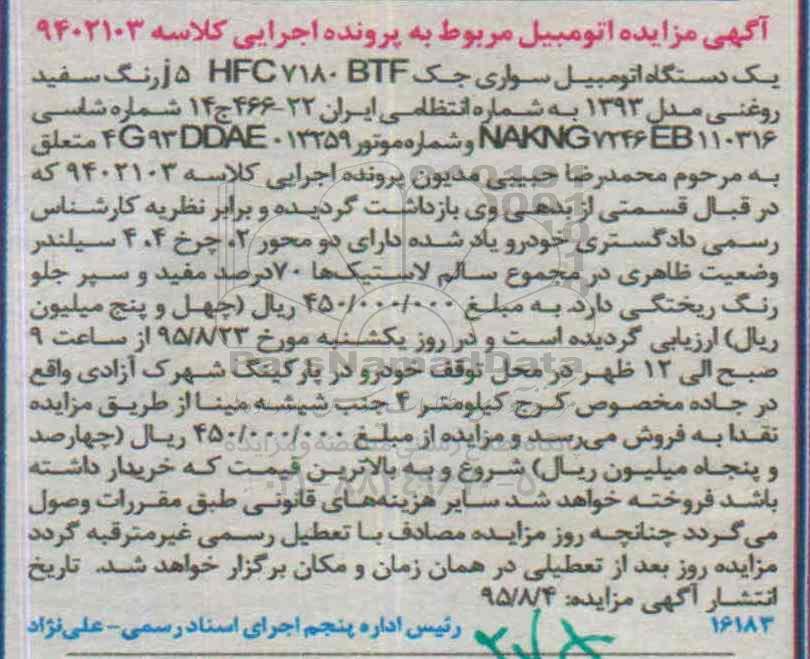 آگهی مزایده اتومبیل مربوط به پرونده اجرایی کلاسه ۹۴۰۲۱۰۳
یک دستگاه اتومبیل سواری جک j۵ HFC۷۱۸۰ BTF رنگ سفید
روغنی مدل ۱۳۹۳ به شماره انتظامی ایران ۲۲-۴۶۶ج۱۴ شماره شاسی
NAKNG۷۲۴۶EB۱۱۰۳۱۶ و شماره موتور ۴G۹۳DDAE۰۱۳۲۵۹ متعلق
به مرحوم محمدرضا حبیبی مدیون پرونده اجرایی کلاسه ۹۴۰۲۱۰۳ که
در قبال قسمتی از بدهی وی بازداشت گردیده و برابر نظریه کارشناس
رسمی دادگستری خودرو یاد شده دارای دو محور ۲، چرخ ۴، ۴ سیلندر
وضعیت ظاهری در مجموع سالم لاستیک‌ها ۷۰درصد مفید و سپر جلو
رنگ ریختگی دارد. به مبلغ ۴۵۰/۰۰۰/۰۰۰ ریال (چهل و پنج میلیون
ریال) ارزیابی گردیده است و در روز یکشنبه مورخ ۹۵/۸/۲۳ از ساعت ۹
صبح الی ۱۲ ظهر در محل توقف خودرو در پارکینگ شهرک آزادی واقع
در جاده مخصوص کرج کیلومتر ۴ جنب شیشه مینا از طریق مزایده
نقدا به فروش می‌رسد و مزایده از مبلغ ۴۵۰/۰۰۰/۰۰۰ ریال (چهارصد
و پنجاه میلیون ریال) شروع و به بالاترین قیمت که خریدار داشته
باشد فروخته خواهد شد سایر هزینه‌های قانونی طبق مقررات وصول
می‌گردد چنانچه روز مزایده مصادف با تعطیل رسمی غیرمترقبه گردد
مزایده روز بعد از تعطیلی در همان زمان و مکان برگزار خواهد شد. تاریخ
انتشار آگهی مزایده: ۹۵/۸/۴
۱۶۱۸۳ رئیس اداره پنجم اجرای اسناد رسمی- علی‌نژاد
ParsNamadData